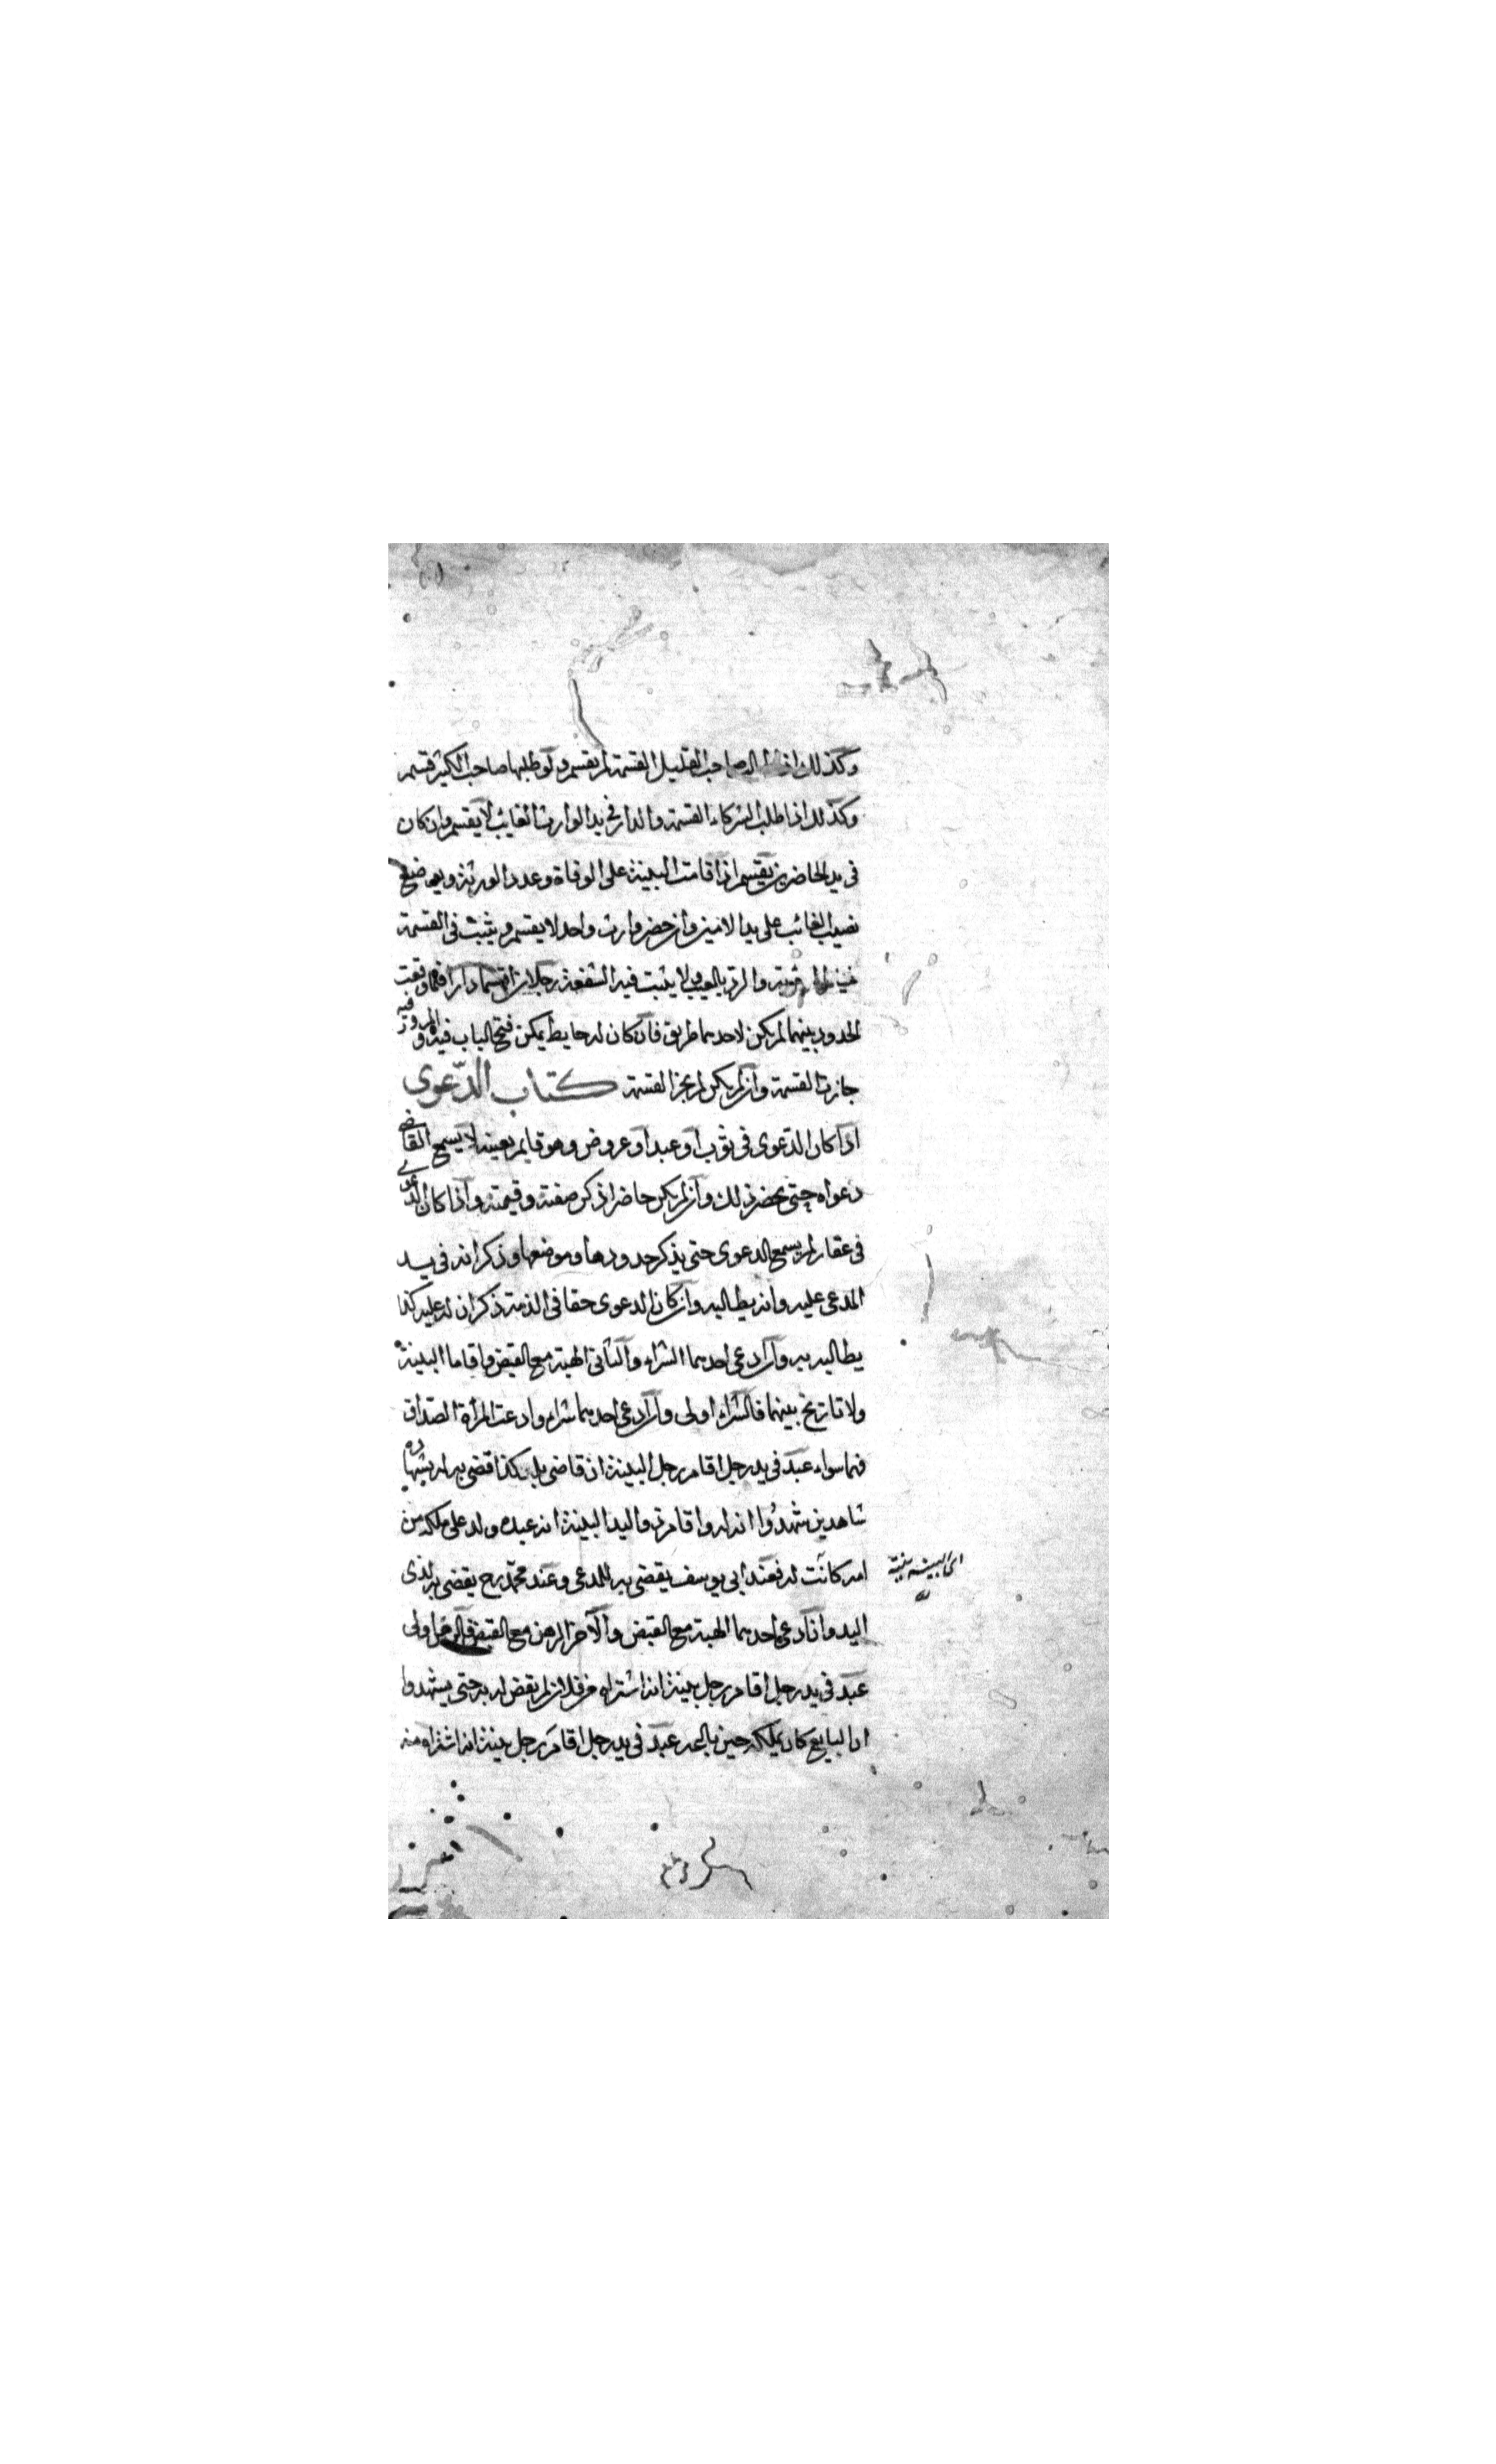 وكذلك اذا صاحب القليل القسمة لم يقسم ولو طلبها صاحب الكثير قسم
وكذلك اذا طلب الشركاء القسمة والدار في يد الوارث الغايب لا يقسم وان كان
في يد الحاضرين يقسم اذا قامت البينة على الوفاة وعدد الورثة ويوضع
نصيب الغائب على يد الامين وان حضر وارث واحد لا يقسم ويثبت في القسمة
خيار والرد بالعيب ولا يثبت فيه الشفعة رجلان اقتسما دارا فلما وقعت
الحدود بينهما لم يكن لاحدهما طريق فان كان له حايط يمكن فتح الباب فيه والمرور فيه
جازت القسمة وان لم يكن لم يجز القسمة كتاب الدّعوى
اذا كان الدعوى في ثوب او عبد او عروض وهو قايم بعينه لا يسمع القاضي
دعواه حتى يحضر ذلك وان لم يكن حاضرا ذكر صفته وقيمته واذا كان الدعوى
في عقار لم يسمع الدعوى حتى يذكر حدودها وموضعها وذكر انه في يد
المدعى عليه وانه يطالبه وان كان الدعوى حقا في الذمة ذكر ان له عليه كذا
يطالبه به وان ادعى احدهما الشراء والثاني الهبة مع القبض واقاما البينة
ولا تاريخ بينهما فالشراء اولى وان ادعى احدهما شراء وادعت المرأة الصداق
فهما سواء عبد في يد رجل اقام رجل البينة ان قاضى بلد كذا قضى به له بشهادة
شاهدين شهدوا انه له واقام ذو اليد البينة انه عبده ولد على ملكه من
امه كانت له فعند ابي يوسف يقضى به للمدعى وعند محمد رح يقضى به لذى
اليد وان ادعى احدهما الهبة مع القبض والآخر الرهن مع القبض فالرهن اولى
عبد في يد رجل اقام رجل بينة انه اشتراه من فلان لم يقض له به حتى يشهدوا
ان البايع كان يملكه حين باعه عبد في يد رجل اقام رجل بينة انه اشتراه منه